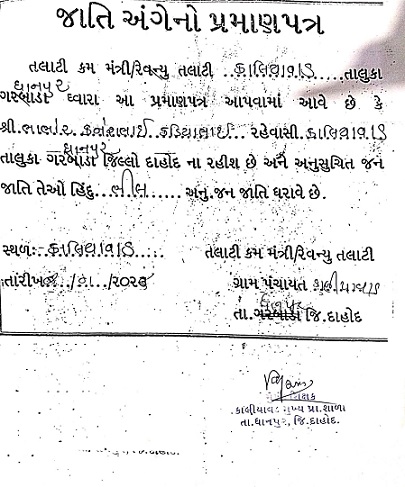 જાતિ અંગેનો પ્રમાણપત્ર
તલાટી કમ મંત્રી/રેવન્યુ તલાટી ..કાલિયાવાડ....તાલુકા
ધાનપુર
ગરબાડા ધ્વારા આ પ્રમાણપત્ર આપવામાં આવે છે કે
શ્રી.ભાભોર.....રહેવાસી.કાલિયાવાડ
ધાનપુર
તાલુકા ગરબાડા જિલ્લો દાહોદ ના રહીશ છે અને અનુસુચિત જન
જાતિ તેઓ હિંદુ.....ભીલ.....અનુ.જન જાતિ ધરાવે છે.
સ્થળઃ-કાલિયાવાડ.....
તલાટી કમ મંત્રી/રેવન્યુ તલાટી
તારીખ
ગ્રામ પંચાયત
ધાનપુર
તા.ગરબાડા જિ.દાહોદ
શિક્ષક
કાલીયાવડ મુખ્ય પ્રા.શાળા
તા.ધાનપુર, જિ.દાહોદ.